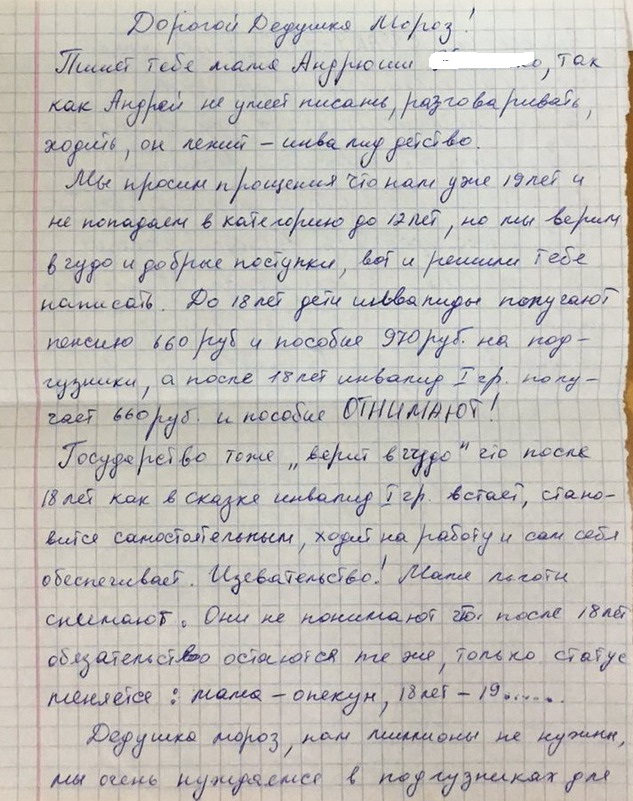 Дорогой Дедушка Мороз!
Пишет тебе мама Андрюши о, так
как Андрей не умеет писать, разговаривать,
ходить, он лежит – инвалид детство.
Мы просим прощения что нам уже 19 лет и
не попадаем в категорию до 12 лет, но мы верим
в чудо и добрые поступки, вот и решили тебе
написать. До 18 лет дети инвалиды получают
пенсию 660 руб и пособие 970 руб. на под-
гузники, а после 18 лет инвалид I гр. полу-
чает 660 руб. и пособие ОТНИМАЮТ!
Государство тоже „верит в чудо" что после
18 лет как в сказке инвалид I гр. встаёт, стано-
вится самостоятельным, ходит на работу и сам себя
обеспечивает. Издевательство! Маме льготы
снимают. Они не понимают что после 18 лет
обязательство остаются те же, только статус
меняется: мама – опекун, 18 лет – 19......
Дедушка мороз, нам миллионы не нужны,
мы очень нуждаемся в подгузниках для